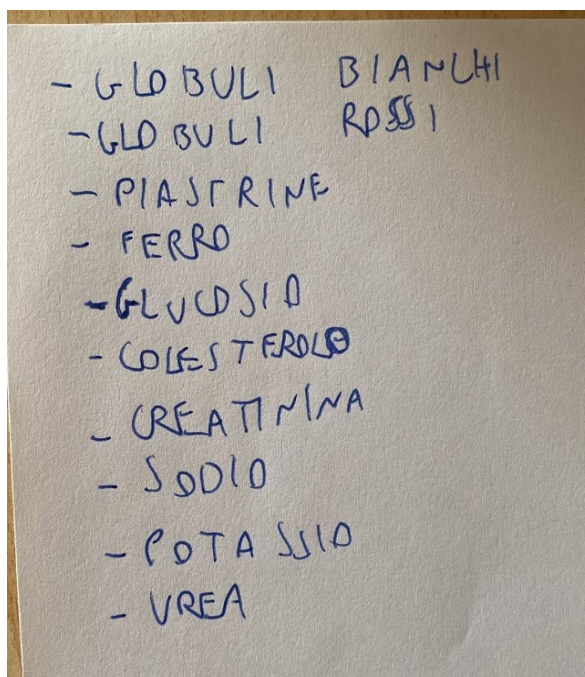 - GLOBULI BIANCHI
- GLOBULI ROSSI
- PIASTRINE
- FERRO
- GLUCOSIO
- COLESTEROLO
- CREATININA
- SODIO
- POTASSIO
- UREA